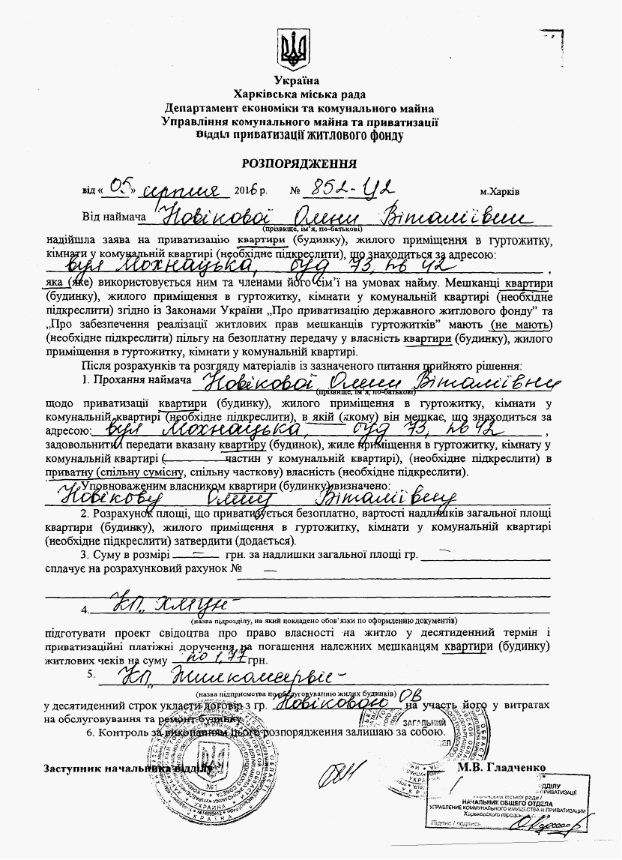 Україна
Харківська міська рада
Департамент економіки та комунального майна
Управління комунального майна та приватизації
Відділ приватизації житлового фонду
РОЗПОРЯДЖЕННЯ
від « 05 » серпня 2016 р. № 852-Ц2 м.Харків
Від наймача Новікової Олени Віталіївни
(прізвище, ім'я, по-батькові)
надійшла заява на приватизацію квартири (будинку), жилого приміщення в гуртожитку,
кімнати у комунальній квартирі (необхідне підкреслити), що знаходиться за адресою:
вул Мохнацька, буд 73, кв 42 ,
яка (яке) використовується ним та членами його сім'ї на умовах найму. Мешканці квартири
(будинку), жилого приміщення в гуртожитку, кімнати у комунальній квартирі (необхідне
підкреслити) згідно із Законами України „Про приватизацію державного житлового фонду" та
„Про забезпечення реалізації житлових прав мешканців гуртожитків" мають (не мають)
(необхідне підкреслити) пільгу на безплатну передачу у власність квартири (будинку), жилого
приміщення в гуртожитку, кімнати у комунальній квартирі.
Після розрахунків та розгляду матеріалів із зазначеного питання прийнято рішення:
1. Прохання наймача Новікової Олени Віталіївни
(прізвище, ім'я, по-батькові)
щодо приватизації квартири (будинку), жилого приміщення в гуртожитку, кімнати у
комунальній квартирі (необхідне підкреслити), в якій (якому) він мешкає, що знаходиться за
адресою: вул Мохнацька, буд 73, кв 42 ,
задовольнити передати вказану квартиру (будинок), жиле приміщення в гуртожитку, кімнату у
комунальній квартирі ( частин у комунальній квартирі), (необхідне підкреслити) в
приватну (спільну сумісну, спільну часткову) власність (необхідне підкреслити).
Уповноваженим власником квартири (будинку) визначено:
Новікову Олену Віталіївну
2. Розрахунок площі, що приватизується безплатно, вартості надлишків загальної площі
квартири (будинку), жилого приміщення в гуртожитку, кімнати у комунальній квартирі
(необхідне підкреслити) затвердити (додається).
3. Суму в розмірі — грн. за надлишки загальної площі гр. —
сплачує на розрахунковий рахунок № —
4. КП „ХМБТІ"
(назва підрозділу, на який покладено обов'язки по оформленню документів)
підготувати проект свідоцтва про право власності на житло у десятиденний термін і
приватизаційні платіжні доручення на погашення належних мешканцям квартири (будинку)
житлових чеків на суму по 1,77 грн.
5. КП „Жилкомсервіс"
(назва підприємства по обслуговуванню жилих будинків)
у десятиденний строк укласти договір з гр. Новіковою ОВ на участь його у витратах
на обслуговування та ремонт будинку.
6. Контроль за виконанням цього розпорядження залишаю за собою.
ЗАГАЛЬНИЙ
Заступник начальника відділу М.В. Гладченко
НАЧАЛЬНИК ОБЩЕГО ОТДЕЛА
УПРАВЛЕНИЕ КОММУНАЛЬНОГО ИМУЩЕСТВА И ПРИВАТИЗАЦИИ
Харьковского городского
Підпис / подпись